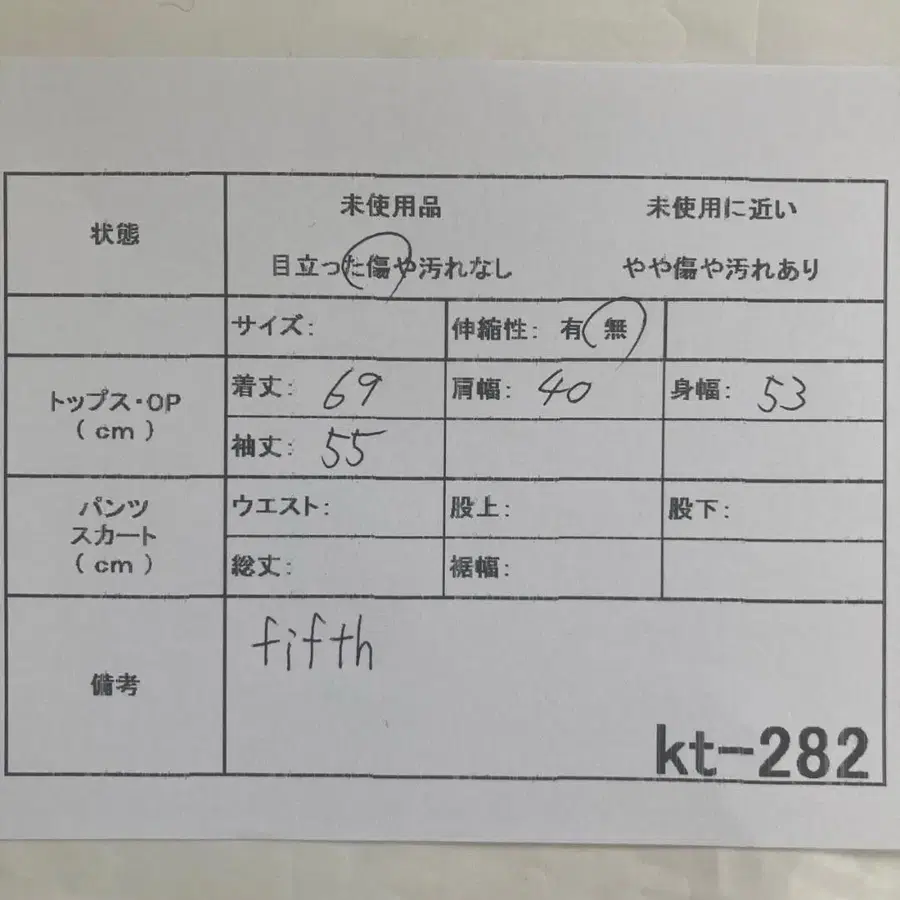 状態
未使用品 未使用に近い
目立った傷や汚れなし やや傷や汚れあり
サイズ: 伸縮性: 有 無
トップス・OP
(cm)
着丈: 69 肩幅: 40 身幅: 53
袖丈: 55
パンツ
スカート
(cm)
ウエスト: 股上: 股下:
総丈: 裾幅:
備考
fifth
kt-282